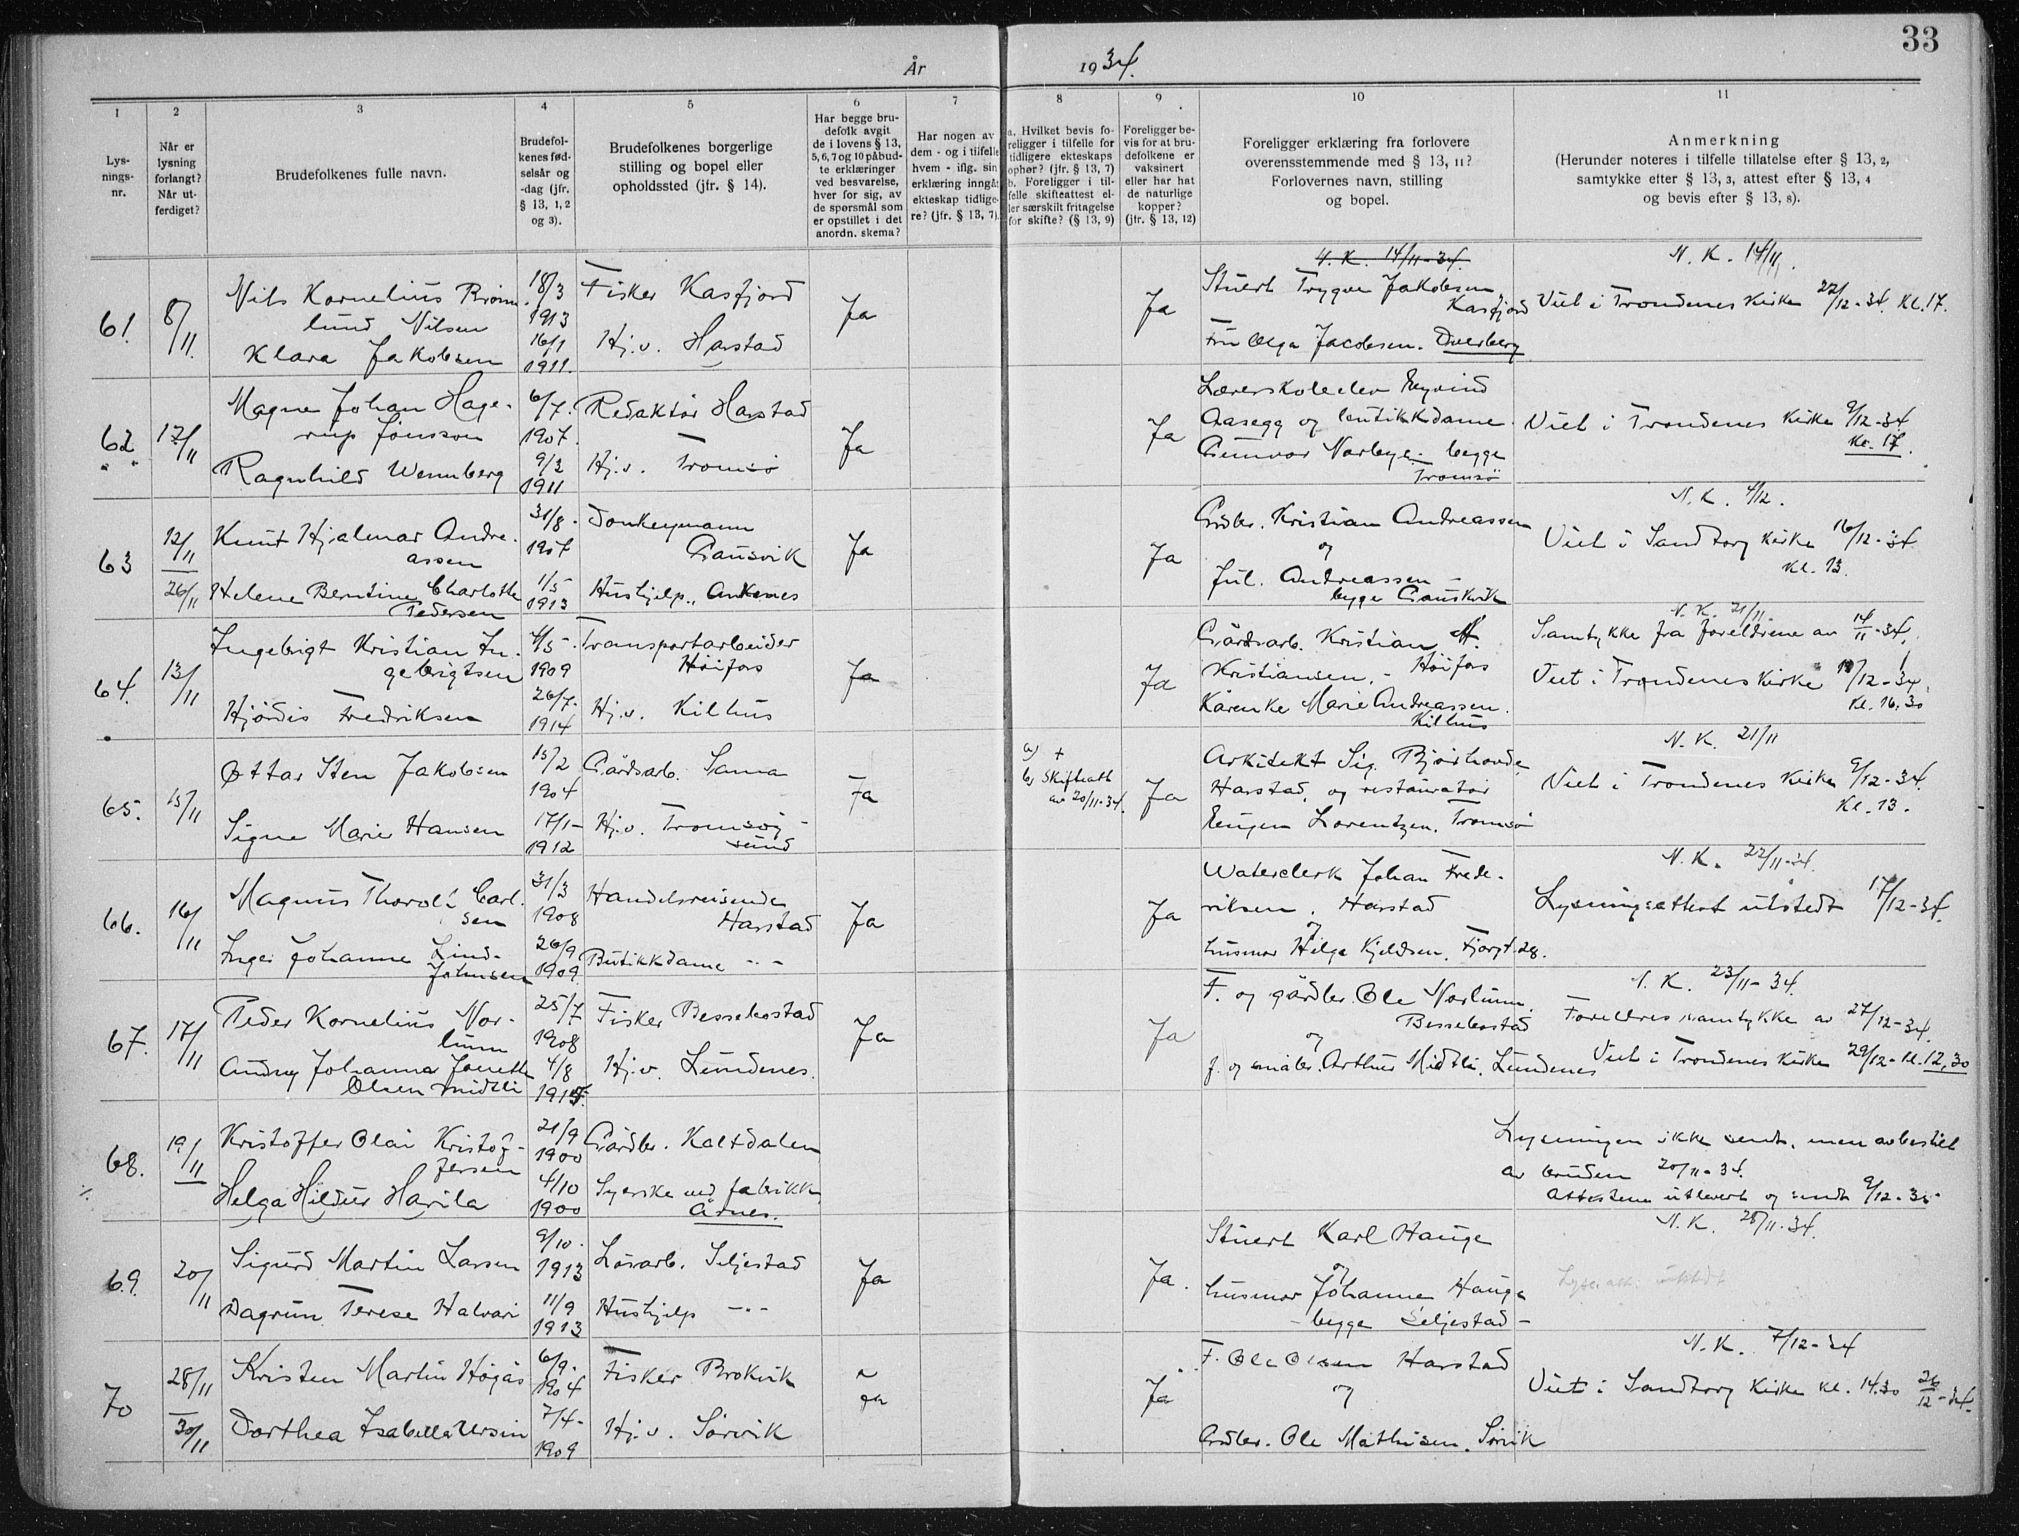 33
År 1934.
1 2 3 4 5 6 7 8 9 10 11
Lys-
nings-
nr.
Når er
lysning
forlangt?
Når ut-
ferdiget?
Brudefolkenes fulle navn.
Brudefol-
kenes fød-
selsår og
-dag (jfr.
§ 13, 1, 2
og 3).
Brudefolkenes borgerlige
stilling og bopel eller
opholdssted (jfr. § 14).
Har begge bru-
defolk avgit
de i lovens § 13,
5, 6, 7 og 10 påbud-
te erklæringer
ved besvarelse,
hver for sig, av
de spørsmål som
er opstillet i det
anordn. skema?
Har nogen av
dem - og i tilfelle
hvem - iflg. sin
erklæring inngåt
ekteskap tidlige-
re? (jfr. § 13, 7).
a. Hvilket bevis fo-
religger i tilfelle for
tidligere ekteskaps
ophør? (jfr. § 13, 7)
b. Foreligger i til-
felle skifteattest el-
ler særskilt fritagelse
for skifte? (§ 13, 9)
Foreligger be-
vis for at bru-
defolkene er
vaksinert
eller har hat
de naturlige
kopper?
(jfr. § 13, 12)
Foreligger erklæring fra forlovere
overensstemmende med § 13, 11?
Forlovernes navn, stilling
og bopel.
Anmerkning
(Herunder noteres i tilfelle tillatelse efter § 13, 2,
samtykke efter § 13, 3, attest efter § 13, 4
og bevis efter § 13, 8).
61. 8/11.
Nils Kornelius
lund Nilsen
Klara Jakobsen
18/3
1913
16/1
1911.
Fisker Kasfjord
Hj.v. Harstad
Ja
Ja
N. K. 14/11-34.
Stuert Trygve Jakobsen
Kasfjord
Fru Olga Jacobsen. Dverberg
N. K. 14/11.
Viet i Trondenes Kirke 22/12-34. Kl. 17.
62 17/11
Magne Johan Hage-
rup Jönsson
Ragnhild Wennberg
6/7.
1907.
9/3
1911
Redaktör Harstad
Hj.v. Tromsö
Ja
Ja
Lærerskoleelev Eyvind
Aasegg og butikkdame
Gunvor Norbye. begge
Tromsö
Viet i Trondenes Kirke 9/12-34
Kl. 17.
63 12/11
26/11
Knut Hjalmar Andre-
assen
Helene Berntine Charlotte
Pedersen
31/8-
1907
1/5
1913
Donkeymann
Gausvik
Hushjelp., Ankenes
Ja
Ja
Grdbr. Kristian Andreassen
og
Jul. Andreassen -
begge Gausvik
N. K. 4/12.
Viet i Sandtorg Kirke 16/12-34
Kl. 13.
64. 13/11
Ingebrigt Kristian In-
gebrigtsen
Hjördis Fredriksen
4/5-
1909
26/7-
1914
Transportarbeider
Höifors
Hj.v. Kilhus
Ja
Ja
Gårdsarb. Kristian
Kristiansen. - Höifors
Kårenke Marie Andreassen.
Kilhus
N. K. 21/11.
Samtykke fra foreldrene av 14/11-34.
Viet i Trondenes Kirke 18/12-34.
Kl. 16,30
65. 15/11
Øttar Sten Jakobsen
Signe Marie Hansen
15/2
1904
17/1-
1912
Gårdsarb. Sama
Hj.v. Tromsöy-
sund
Ja
a) +
b) Skifteatt.
av 20/11-34.
Ja
Arkitekt Sig. Bjørhovde,
Harstad, og restauratör
Eugen Lorentzen. Tromsö
N. K. 21/11
Viet i Trondenes Kirke 9/12-34.
Kl. 13.
66. 16/11
Magnus Thorolf Carl-
sen
Inger Johanne Lind-
Johnsen
31/3
1908
26/9
1909.
Handelsreisende
Harstad
Butikkdame -"-
Ja
Ja
Waterclerk Johan Frede-
riksen. Harstad
og
husmor Helga Kjeldsen. Fjorgt. 28.
N. K. 22/11-34.
Lysningsattest utstedt 17/12-34.
67. 17/11
Peder Kornelius Nor-
lunn
Audny Johanna Jonette
Olsen Midtli
25/7
1908
4/8
Fisker Bessebostad
Hj.v. Lundenes.
Ja
Ja
F. og gårdbr. Ole Norlunn.
Bessebostad
og
f. og småbr. Arthur Midtli. Lundenes
N. K. 23/11-34.
Foreldres samtykke av 27/12-34.
Viet i Trondenes Kirke 29/12- Kl. 12,30
68. 19/11
Kristoffer Olai Kristof-
fersen
Helga Hildur Havila
21/9
1900
4/10
1900
Gårdbr. Kaltdalen
Syerske ved fabrikk
Årnes.
Lysningen ikke sendt, men avbestilt
av bruden 20/11-34.
Attestene utlevert og sendt 9/12-35
69. 20/11
Sigurd Martin Larsen
Dagrun Terese Halvari
9/10.
1913
11/9
1913
Løsarb. Seljestad
Hushjelp -"-
Ja
Ja.
Stuert Karl Hauge
og
husmor Johanne Hauge
- begge Seljestad -
N. K. 28/11-34.
Lysn.att. utstedt
70 28/11
30/11
Kristen Martin Högås
Dorthea Isabella Ursin
6/9.
1904
7/4-
1909
Fisker Brokvik
Hj.v. Sørvik
Ja
Ja
F. Ole Olsen Harstad
og
Grdbr. Ole Mathisen. Sörvik
N. K. 7/12-34
Viet i Sandtorg Kirke kl. 14.30 26/12-34.